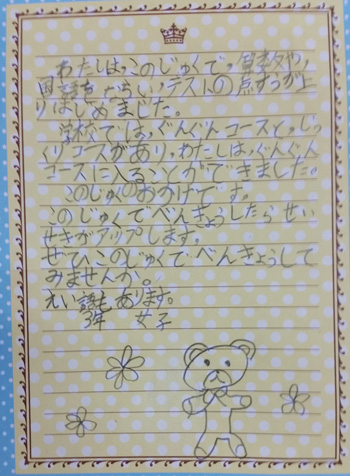 わたしは、このじゅくで、算数や、
国語を　ならい、テストの点すうが上
りはじめました。
学校では、ぐんぐんコースと、じっ
くりコースがあり、わたしは、ぐんぐん
コースに入ることができました。
このじゅくのおかげです。
このじゅくでべんきょうしたら せい
せきがアップします。
ぜひこのじゅくで べんきょうして
みませんか。
えい語も あります。
3年 女子